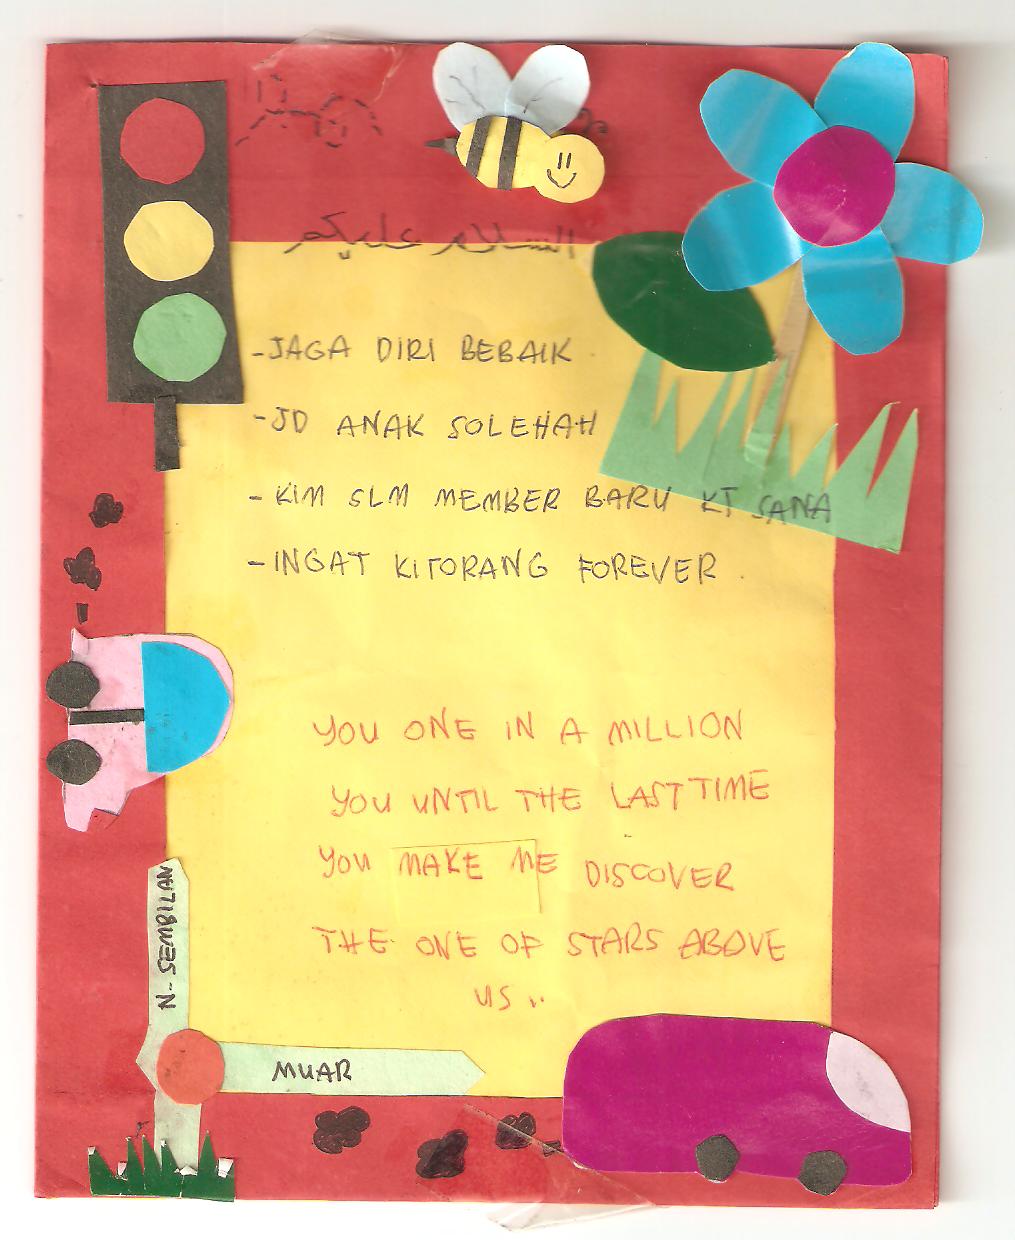 السلام عليكم
-JAGA DIRI BEBAIK
-JD ANAK SOLEHAH
-KIM SLM MEMBER BARU KT SANA
-INGAT KITORANG FOREVER.
YOU ONE IN A MILLION
YOU UNTIL THE LAST TIME
YOU MAKE ME DISCOVER
THE ONE OF STARS ABOVE
US ..
N-SEMBILAN
MUAR